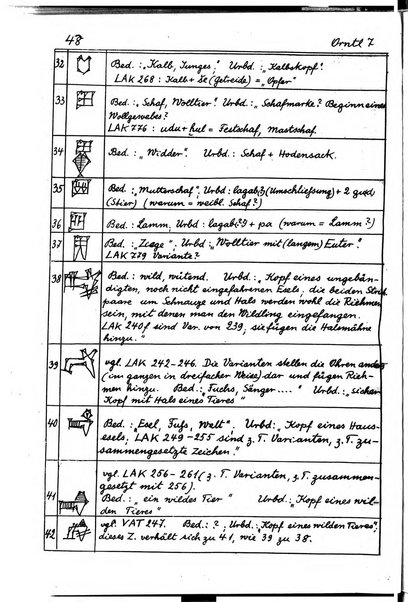 48
Orntl 7
32
Bed.: „Kalb, Junges". Urbd.: „Kalbskopf".
LAK 268: Kalb + še (Getreide) = „Opfer"
33
Bed.: „Schaf, Wolltier". Urbd.: „Schafmarke? Beginn eines
Wollgewebes?
LAK 776: udu + hul = Fettschaf, Mastschaf.
34
Bed.: „Widder". Urbd.: Schaf + Hodensack.
35
Bed.: „Mutterschaf". Urbd.: lagab(?) (Umschließung) + 2 gud
(Stier) (warum = weibl. Schaf?)
36
Bed.: Lamm. Urbd.: lagab(?) + pa (warum = Lamm?)
37
Bed.: „Ziege". Urbd.: „Wolltier mit (langem) Euter".
LAK 779 Variante?
38
Bed.: wild, wütend. Urbd.: „Kopf eines ungebän-
digten, noch nicht eingefahrenen Esels, die beiden Strich
paare um Schnauze und Hals werden wohl die Riehmen
sein, mit denen man den Wildling eingefangen.
LAK 240 f sind Var. von 239, sie fügen die Halsmähne
hinzu."
39
vgl. LAK 242-246. Die Varianten stellen die Ohren anders
(im ganzen in dreifacher Weise) dar und fügen Rieh-
men hinzu. Bed.: „Fuchs, Sänger...." Urbd.: „sicher
Kopf mit Hals eines Tieres"
40
Bed.: „Esel, Fuß, Welt". Urbd.: Kopf eines Haus-
esels. LAK 249-255 sind z. T. Varianten, z. T. zu-
sammengesetzte Zeichen."
41
vgl. LAK 256-261 (z. T. Varianten, z. T. zusammen-
gesetzt mit 256).
Bed.: „ein wildes Tier" Urbd.: „Kopf eines wil-
den Tieres"
42
vgl. VAT 247. Bed.: ? Urbd.: „Kopf eines wilden Tieres",
dieses Z. verhält sich zu 41, wie 39 zu 38.